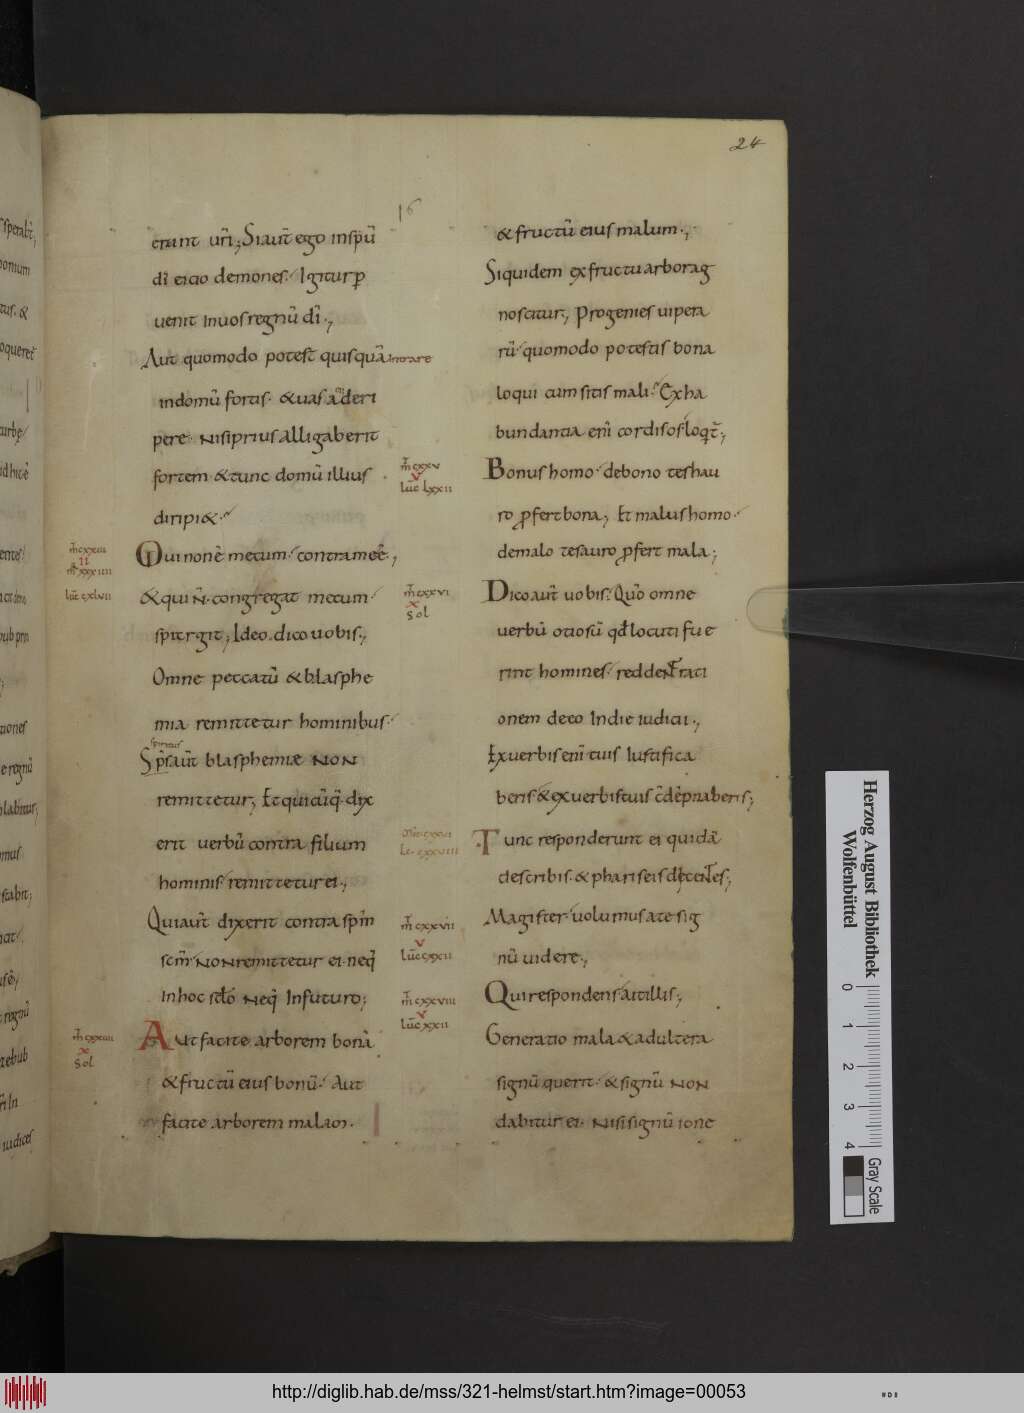 24
16
erunt urī; Siaut̄ ego inspū
dī eicio demones. Igitur ꝑ
uenit inuos regnū dī.,
Aut quomodo potest quisquā intrare
indomū fortis. & uasa ei deri
pere nisi prius alligaberit
fortem. & tunc domū illius
diripi&.
m̄ cxxiii
II
lūc cxlvii
Qui non ē mecum. contra me ē.,
& qui n̄. congregat mecum.
spargit; Ideo dico uobis.,
Omne peccatū & blasphe
mia remittetur hominibus.
spiritus
Sp̄s aut̄ blasphemiæ NON
remittetur; Et quicūq; dix
erit uerbū contra filium
hominis. remittetur ei.,
Qui aut̄ dixerit contra sp̄m
sc̄m. NON remittetur ei. neq;
in hoc sc̄lo neq; In futuro;
m̄ cxxiiii
x
sol
Aut facite arborem bonā
& fructū eius bonū. Aut
facite arborem malam.
& fructū eius malum.,
Siquidem ex fructu arbor ag
noscitur, Progenies uipera
rū. quomodo potestis bona
loqui cum sitis mali. Ex ha
bundantia enī cordis os loq̄t̄.,
m̄ cxxv
v
lūc lxxii
Bonus homo. de bono teshau
ro ꝓfert bona, Et malus homo.
de malo tesauro ꝓfert mala;
m̄ cxxvi
x
sol
Dico aut̄ uobis. Quō omne
uerbū otiosū qđ locuti fue
rint homines. reddent rati
onem de eo In die iudicii.,
Ex uerbis enī tuis Iustifica
beris. & ex uerbis tuis c̄dēpnaberis;
Tunc responderunt ei quidā
de scribis. & phariseis dicentes;
m̄ cxxvii
v
lūc cxxii
Magister. uolumus a te sig
nū uidere.,
m̄ cxxviii
v
lūc cxxii
Qui respondens ait illis.,
Generatio mala & adultera
signū querit. & signū NON
dabitur ei. Nisi signū ione
Herzog August Bibliothek
Wolfenbüttel
0 1 2 3 4
Gray Scale
http://diglib.hab.de/mss/321-helmst/start.htm?image=00053